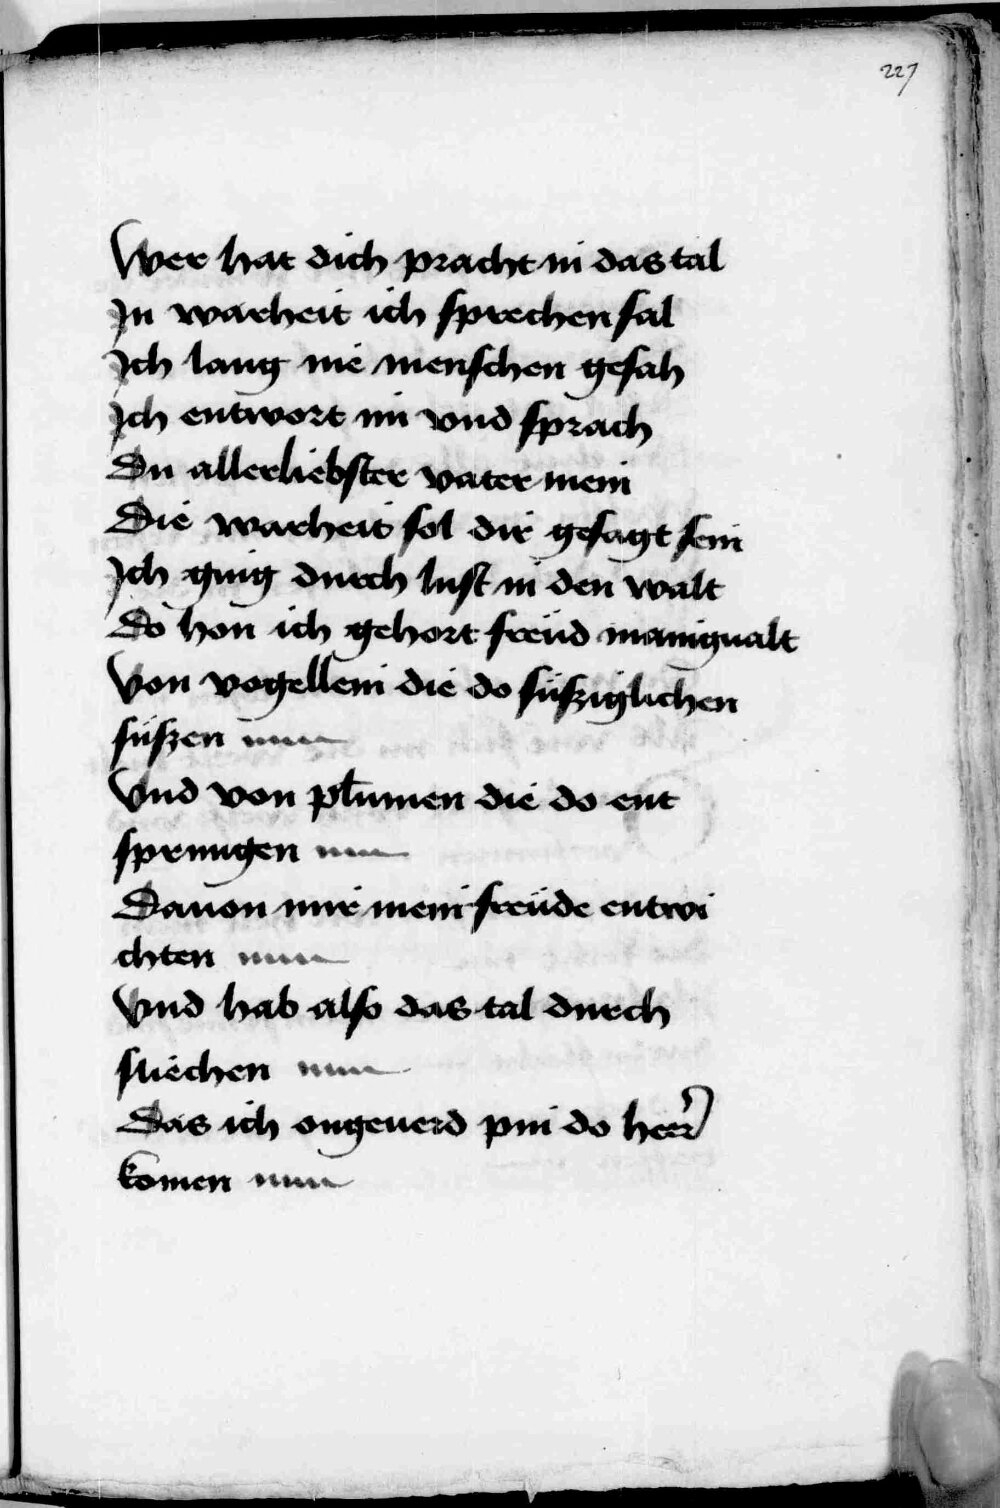 227
Wer hat dich pracht in das tal
In warheit ich sprechen sal
Ich lang nie menschen gesah
Ich entwort im vnd sprach
Du allerliebster vater mein
Die warheit sol dir gesagt sein
Ich ging durch lust in den walt
Do hon ich gehort freüd manigualt
Von vogellein die do süsziglichen
süszen
Vnd von plumen die do ent
sprungen
Dauon mir mein freüde entwi
chten
Vnd hab also das tal durch
sliechen
Das ich ongeuerd pin do herr
komen